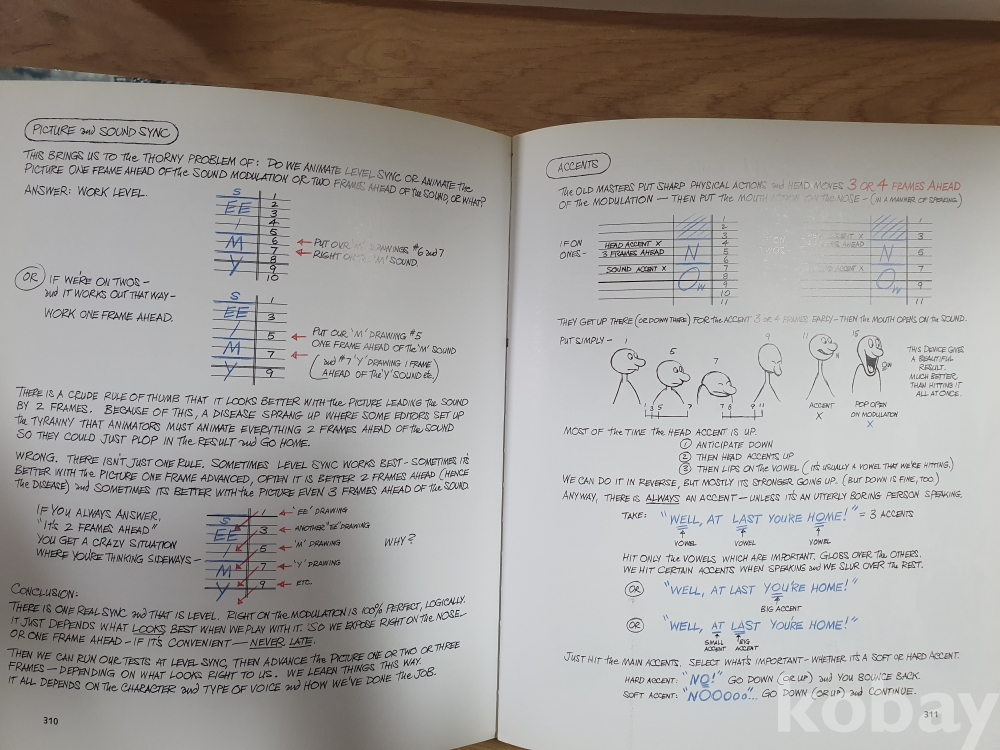 PICTURE and SOUND SYNC
THIS BRINGS US TO THE THORNY PROBLEM OF: DO WE ANIMATE LEVEL SYNC OR ANIMATE THE
PICTURE ONE FRAME AHEAD OF THE SOUND MODULATION OR TWO FRAMES AHEAD OF THE SOUND, OR WHAT?
ANSWER: WORK LEVEL.
S 1
EE 2
3
I 4
5
M 6
7
Y 8
9
10
PUT OUR 'M' DRAWINGS #6 and 7
RIGHT ON THE 'M' SOUND.
OR
IF WE'RE ON TWOS -
and IT WORKS OUT THAT WAY -
WORK ONE FRAME AHEAD.
S 1
EE 3
I 5
M 7
Y 9
PUT OUR 'M' DRAWING #5
ONE FRAME AHEAD OF THE 'M' SOUND
(and #7 'Y' DRAWING 1 FRAME
AHEAD OF THE 'Y' SOUND etc.)
THERE IS A CRUDE RULE OF THUMB THAT IT LOOKS BETTER WITH THE PICTURE LEADING THE SOUND
BY 2 FRAMES. BECAUSE OF THIS, A DISEASE SPRANG UP WHERE SOME EDITORS SET UP
THE TYRANNY THAT ANIMATORS MUST ANIMATE EVERYTHING 2 FRAMES AHEAD OF THE SOUND
SO THEY COULD JUST PLOP IN THE RESULT and GO HOME.
WRONG. THERE ISN'T JUST ONE RULE. SOMETIMES LEVEL SYNC WORKS BEST - SOMETIMES IT'S
BETTER WITH THE PICTURE ONE FRAME ADVANCED, OFTEN IT IS BETTER 2 FRAMES AHEAD (HENCE
THE DISEASE) and SOMETIMES IT'S BETTER WITH THE PICTURE EVEN 3 FRAMES AHEAD OF THE SOUND.
IF YOU ALWAYS ANSWER,
"IT'S 2 FRAMES AHEAD"
YOU GET A CRAZY SITUATION
WHERE YOU'RE THINKING SIDEWAYS -
S 1 'EE' DRAWING
EE 3 ANOTHER 'EE' DRAWING
I 5 'M' DRAWING
M 7 'Y' DRAWING
Y 9 ETC.
WHY?
CONCLUSION:
THERE IS ONE REAL SYNC and THAT IS LEVEL. RIGHT ON THE MODULATION IS 100% PERFECT, LOGICALLY.
IT JUST DEPENDS WHAT LOOKS BEST WHEN WE PLAY WITH IT. SO WE EXPOSE RIGHT ON THE NOSE -
OR ONE FRAME AHEAD - IF IT'S CONVENIENT - NEVER LATE.
THEN WE CAN RUN OUR TESTS AT LEVEL SYNC, THEN ADVANCE THE PICTURE ONE OR TWO OR THREE
FRAMES - DEPENDING ON WHAT LOOKS RIGHT TO US. WE LEARN THINGS THIS WAY.
IT ALL DEPENDS ON THE CHARACTER and TYPE OF VOICE and HOW WE'VE DONE THE JOB.
310
ACCENTS
THE OLD MASTERS PUT SHARP PHYSICAL ACTIONS and HEAD MOVES 3 OR 4 FRAMES AHEAD
OF THE MODULATION - THEN PUT THE MOUTH ACTION ON THE NOSE - (IN A MANNER OF SPEAKING)
IF ON
ONES -
1
2
3
HEAD ACCENT X 4
3 FRAMES AHEAD N 5
6
SOUND ACCENT X 7
OW 8
9
10
11
1
3
AHEAD N 5
ACCENT X 7
OW 9
11
THEY GET UP THERE (OR DOWN THERE) FOR THE ACCENT 3 OR 4 FRAMES EARLY - THEN THE MOUTH OPENS ON THE SOUND.
PUT SIMPLY -
1 5 7 9 11 15
N
OW
1 3 5 7
7 8 9 11
ACCENT
X
POP OPEN
ON MODULATION
X
THIS DEVICE GIVES
A BEAUTIFUL
RESULT.
MUCH BETTER
THAN HITTING IT
ALL AT ONCE.
MOST OF THE TIME THE HEAD ACCENT IS UP.
1 ANTICIPATE DOWN
2 THEN HEAD ACCENTS UP
3 THEN LIPS ON THE VOWEL (IT'S USUALLY A VOWEL THAT WE'RE HITTING.)
WE CAN DO IT IN REVERSE, BUT MOSTLY IT'S STRONGER GOING UP. (BUT DOWN IS FINE, TOO.)
ANYWAY, THERE IS ALWAYS AN ACCENT - UNLESS IT'S AN UTTERLY BORING PERSON SPEAKING.
TAKE: "WELL, AT LAST YOU'RE HOME!" = 3 ACCENTS
VOWEL VOWEL VOWEL
HIT ONLY THE VOWELS WHICH ARE IMPORTANT. GLOSS OVER THE OTHERS.
WE HIT CERTAIN ACCENTS WHEN SPEAKING and WE SLUR OVER THE REST.
OR "WELL, AT LAST YOU'RE HOME!"
BIG ACCENT
OR "WELL, AT LAST YOU'RE HOME!"
SMALL ACCENT BIG ACCENT
JUST HIT THE MAIN ACCENTS. SELECT WHAT'S IMPORTANT - WHETHER IT'S A SOFT OR HARD ACCENT.
HARD ACCENT: "NO!" GO DOWN (OR UP) and YOU BOUNCE BACK.
SOFT ACCENT: "NOOooo"... GO DOWN (OR UP) and CONTINUE.
311
kobay